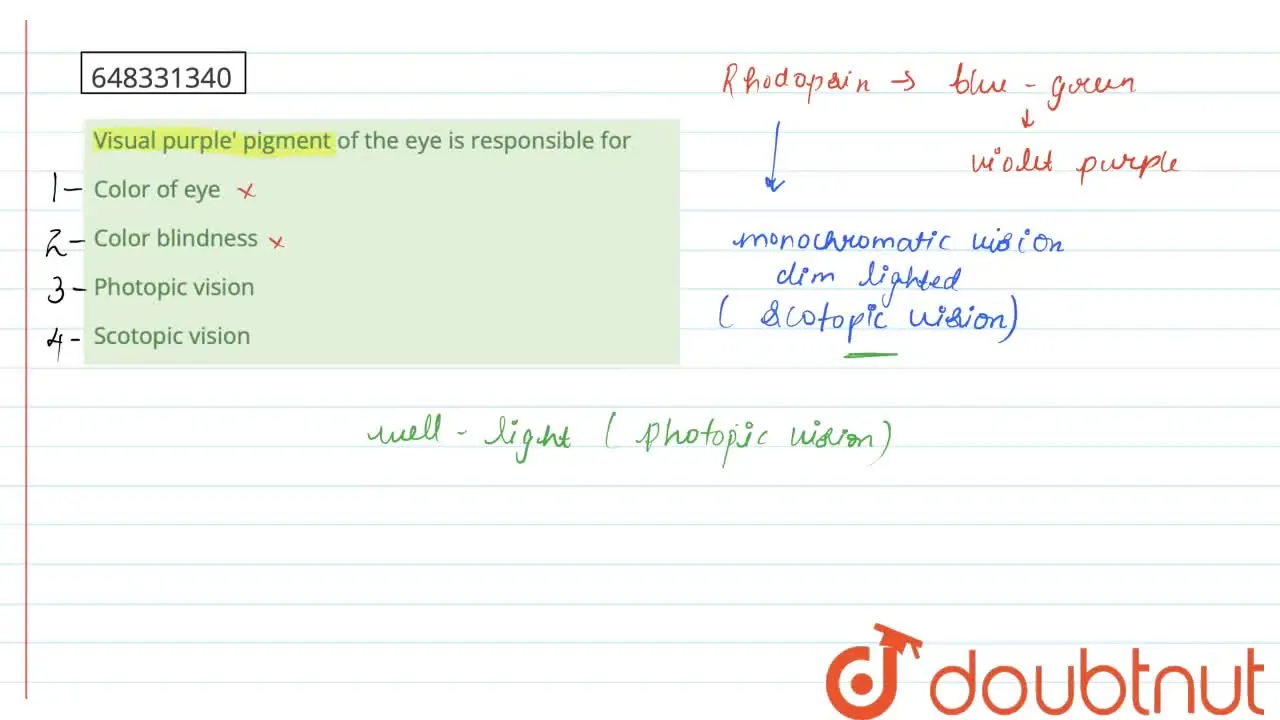 648331340
Visual purple' pigment of the eye is responsible for
1- Color of eye ×
2- Color blindness ×
3- Photopic vision
4- Scotopic vision
Rhodopsin → blue - green
↓
violet purple
↓
monochromatic vision
dim lighted
( scotopic vision)
well - light ( photopic vision)
doubtnut